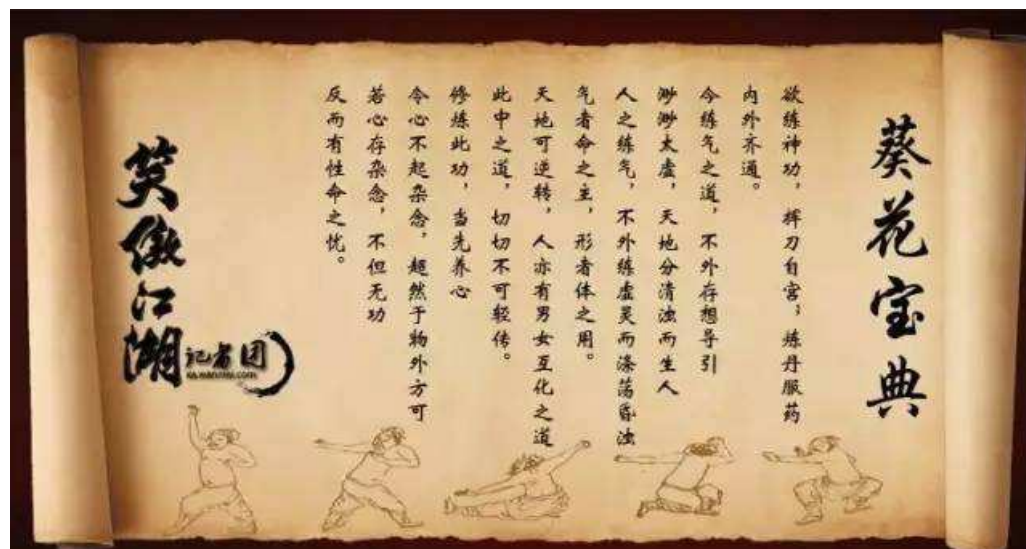 葵花宝典
欲练神功，挥刀自宫；炼丹服药
内外齐通。
今练气之道，不外存想导引
渺渺太虚，天地分清浊而生人
人之练气，不外练虚灵而涤荡昏浊
气者命之主，形者体之用。
天地可逆转，人亦有男女互化之道
此中之道，切切不可轻传。
修炼此功，当先养心
令心不起杂念，超然于物外方可
若心存杂念，不但无功
反而有性命之忧。
笑傲江湖
记者团